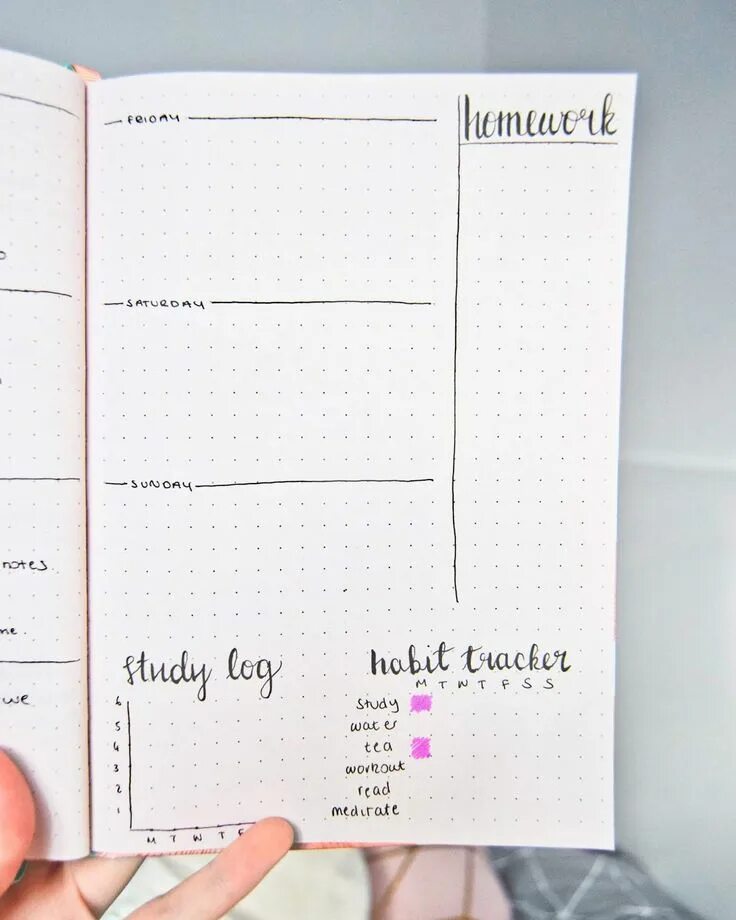 notes
we
FRIDAY
SATURDAY
SUNDAY
homework
study log
6
5
4
3
2
1
M T W T F
habit tracker
M T W T F S S
study
water
tea
workout
read
meditate